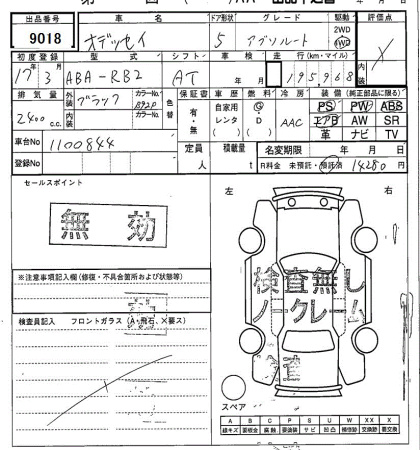 出品番号 車名 ドア形状 グレード 駆動 評価点
9018 オデッセイ 5 アブソルート 2WD 4WD
初度登録 型式 シフト 車検 走行(km・マイル)
17年3月 ABA-RB2 AT 年 月 195,968
排気量 外装 ブラック カラーNo. B92P 内装 カラーNo. 色替 保証書 車歴 燃料 冷房 装備(純正部品に限る)
2400 c.c. 有・無 自家用 レンタ ( ) G・D ( ) AAC PS PW ABS
エアB AW SR
革 ナビ TV
車台No 1100844 定員 人 積載量 t 名変期限 年 月 日
登録No R料金 未預託・預託済 14280円
セールスポイント 左 右
無効
※注意事項記入欄(修復・不具合箇所および状態等)
検査無し
ノークレーム
検査員記入 フロントガラス(A・飛石、X要ス)
検査
スペア
A B C P S U W XX X
線キズ 要板金 腐蝕 要塗装 サビ 凹凸 補修跡 交換 要交換